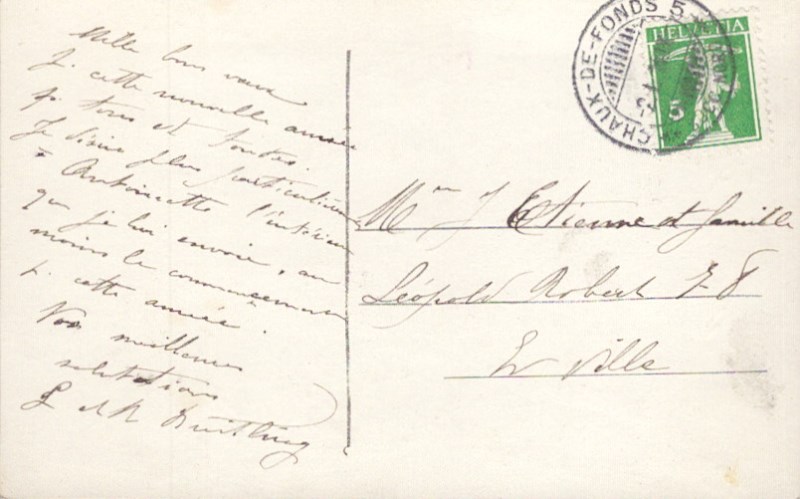 Mille bons vœux
p. cette nouvelle année
p. tous et toutes.
Je désire plus particulièrem
Antoinette l'intérieur
que je lui envoie, au
moins le commencement
p. cette année.
Vos meilleures
salutations
CHAUX-DE-FONDS 5
HELVETIA
5
Mme J Etienne et famille
Léopold Robert 78
En Ville